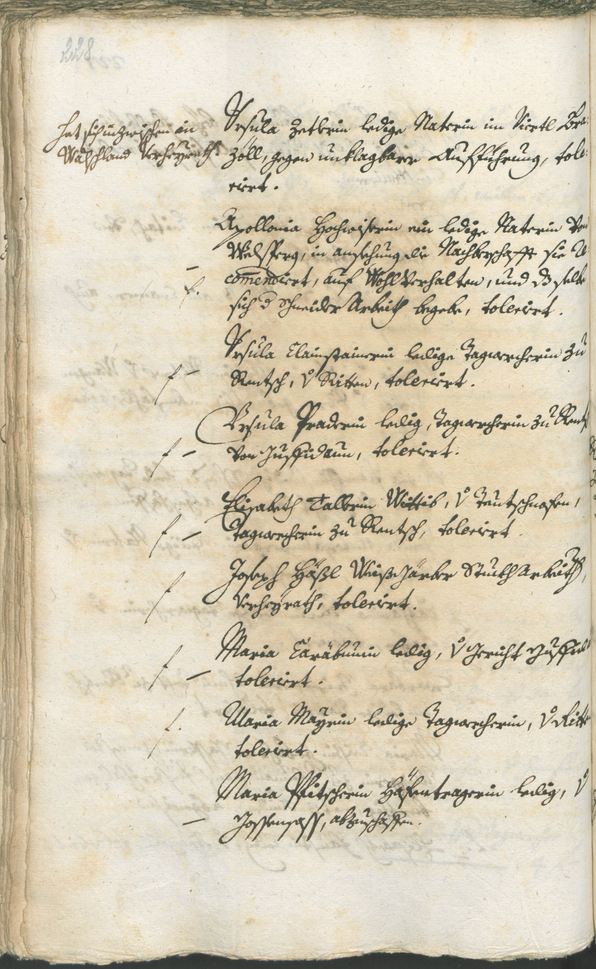 228
hat sich inzwischen in
Wälschland verheyrath.
Ursula Zetlerin ledige Naterin im Viertl
Zoll, gegen unklagbarer Aufführung, tole-
rirt.
Apollonia Hochwiserin ein ledige Naterin von
Welsperg, in ansehung die Nachberschafft sie re-
comendiert, auf Wohlverhalten, und dß selbe
sich d schneider Arbeith begebe, tolerirt.
Ursula Clainstainerin ledige Tagwercherin zu
Rentsch, v Ritten, tolerirt.
Ursula Praderin ledig, Tagwercherin zu Rentsch
von Juffidaun, tolerirt.
f -
Elisabeth Talbrin Wittib, v Teutschnofen,
Tagwercherin zu Rentsch, tolerirt.
f -
Joseph Häßl Weißgärber Stuckh Arbeith,
verheyrath, tolerirt.
f
Maria ledig, v Gericht
tolerirt.
f -
Maria Mayrin ledige Tagwercherin, v Ritten
tolerirt.
f.
Maria Pfitscherin Häfentragerin ledig, v
Gossensass, abzuschaffen.